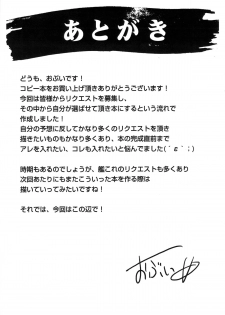 あとがき
どうも、おぶいです!
コピー本をお買い上げ頂きありがとうございます!
今回は皆様からリクエストを募集し、
その中から自分が選ばせて頂き本にするという流れで
作成しました!
自分の予想に反してかなり多くのリクエストを頂き
描きたいものもかなりあり、本の完成直前まで
アレを入れたい、コレも入れたいと悩んでました(｀ε´;)
時期もあるのでしょうが、艦これのリクエストも多くあり
次回あたりにもまたこういった本を作る際は
描いていってみたいですね!
それでは、今回はこの辺で!